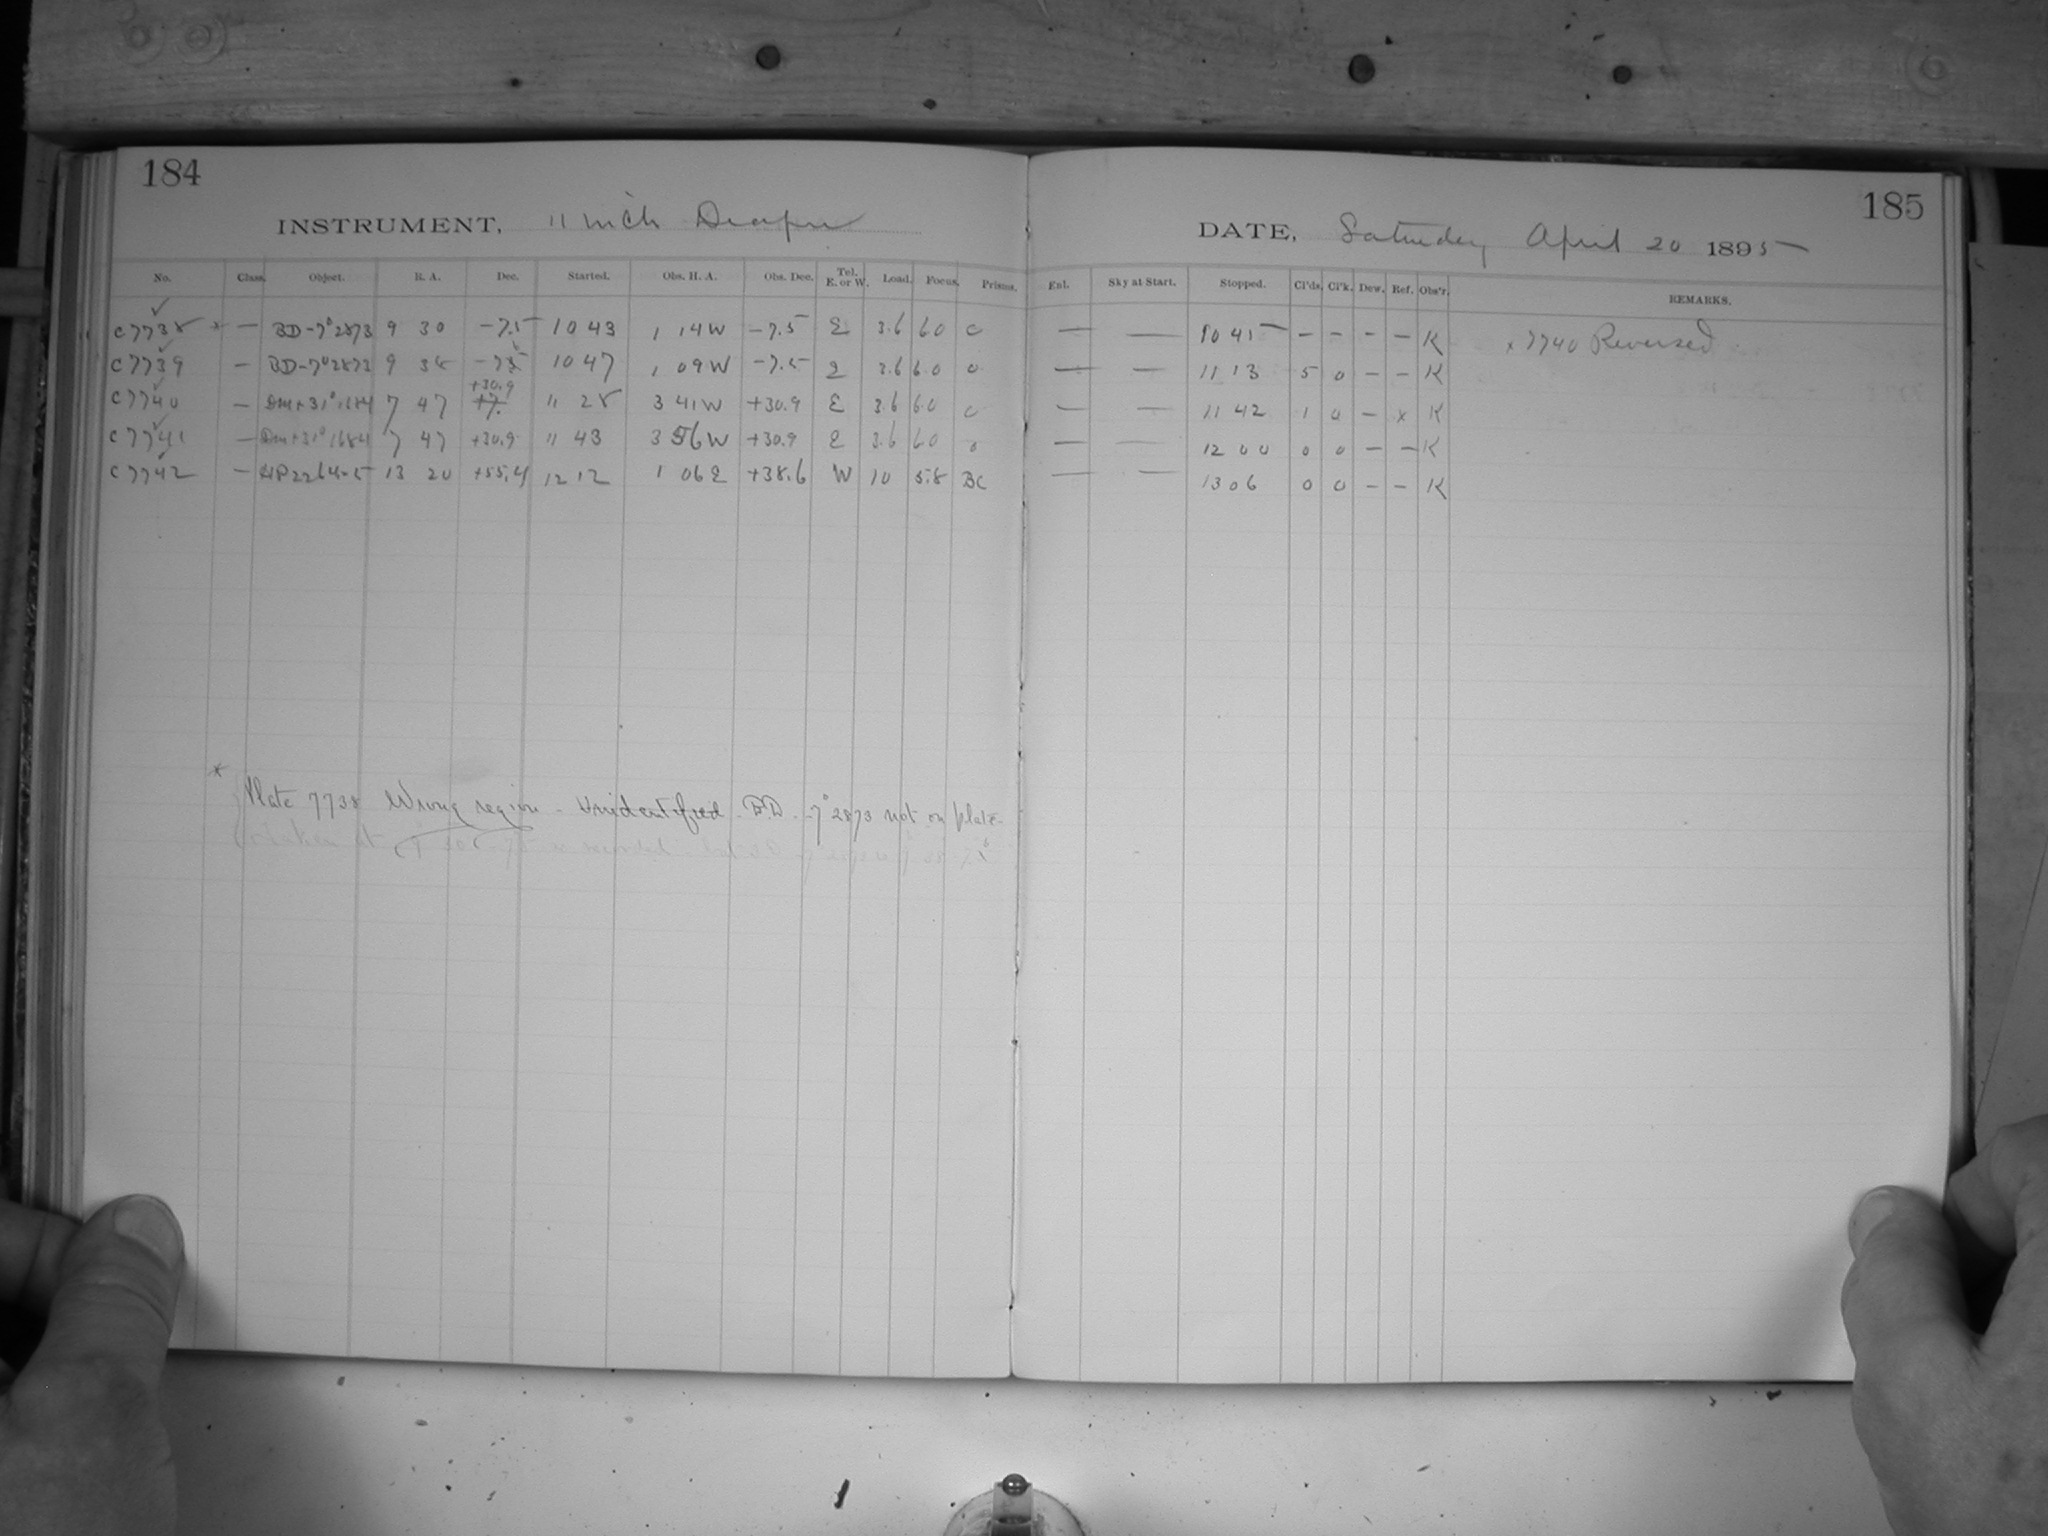 184
INSTRUMENT, 11 inch Draper
No. Class. Object. R. A. Dec. Started. Obs. H. A. Obs. Dec. Tel. E. or W. Load. Focus. Prisms.
C7738 * — BD-7°2873 9 30 -7.5 10 43 1 14W -7.5 E 3.6 6.0 0
C7739 — BD-7°2873 9 38 10 47 1 09W -7.5 E 3.6 6.0 0
+30.9
C7740 — DM+31°1684 7 47 +7. 11 28 3 41W +30.9 E 3.6 6.0 0
C7741 — DM+31°1684 7 47 +30.9 11 43 3 56W +30.9 E 3.6 6.0 0
C7742 — HP2264-5 13 20 +55.4 12 12 1 06E +38.6 W 10 5.8 BC
* Plate 7738 Wrong region - Unidentified. B.D. -7°2873 not on plate
185
DATE, Saturday April 20 1895
Enl. Sky at Start. Stopped. Cl'ds. Cl'k. Dew. Ref. Obs'r. REMARKS.
— — 10 45 - - - - K x 7740 Reversed
— — 11 13 5 0 - - K
— — 11 42 1 0 - x K
— — 12 00 0 0 - - K
— — 13 06 0 0 - - K